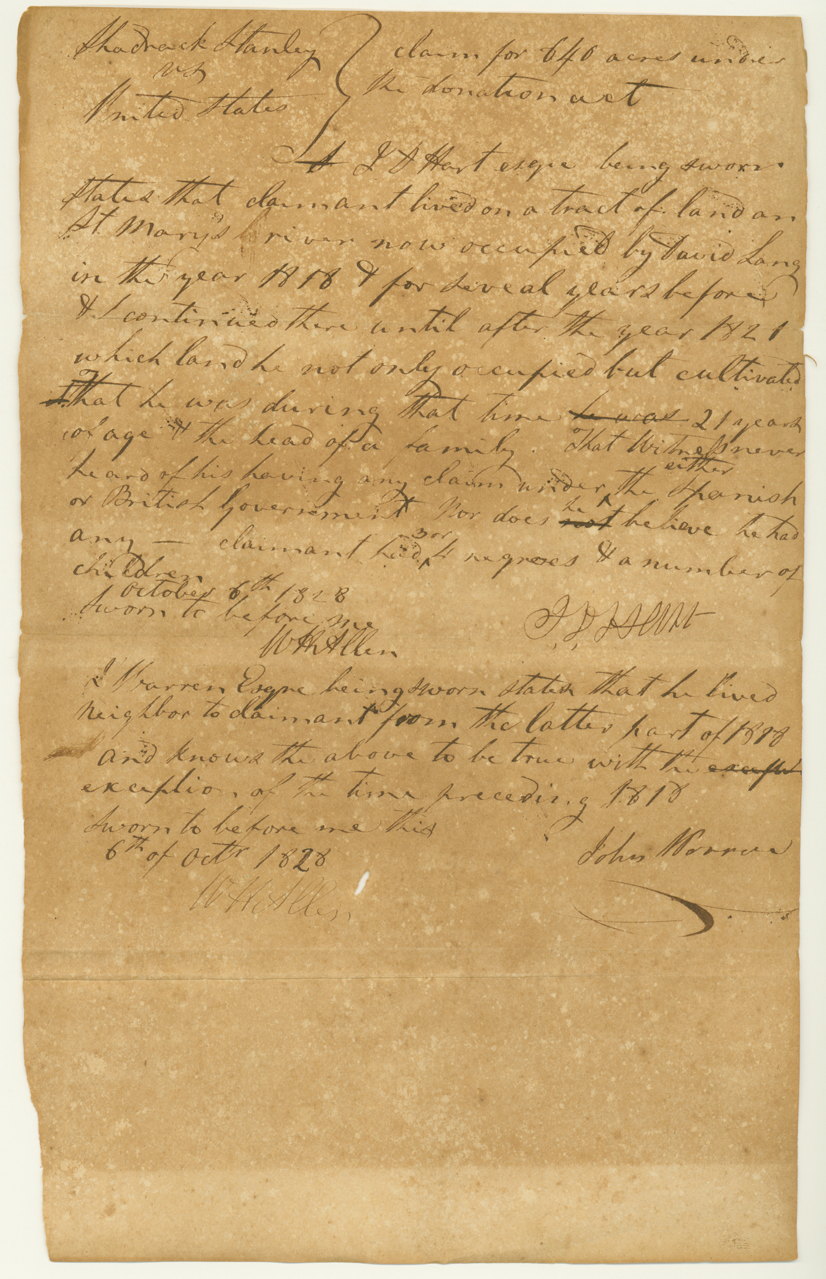 Shadrack Stanley
vs
United States
claim for 640 acres under
the donation act
I D Hart esqre being sworn
states that claimant lived on a tract of land on
St Mary's river now occupied by David Lang
in the year 1818 & for seveal years before
& continued there until after the year 1821
which land he not only occupied but cultivated
That he was during that time he was 21 years
of age & the head of a family. That Witness never
heard of his having any claim under either the Spanish
or British Government Nor does he not believe he had
any — claimant had 3 or 4 negroes & a number of
children
October 6th 1828
Sworn to before me
I D Hart
W H Allen
J Warren Esqre being sworn states that he lived
neighbor to claimant from the latter part of 1818
and knows the above to be true with the except
exception of the time preceding 1818
Sworn to before me this
6th of Octr 1828
John Warren
W H Allen